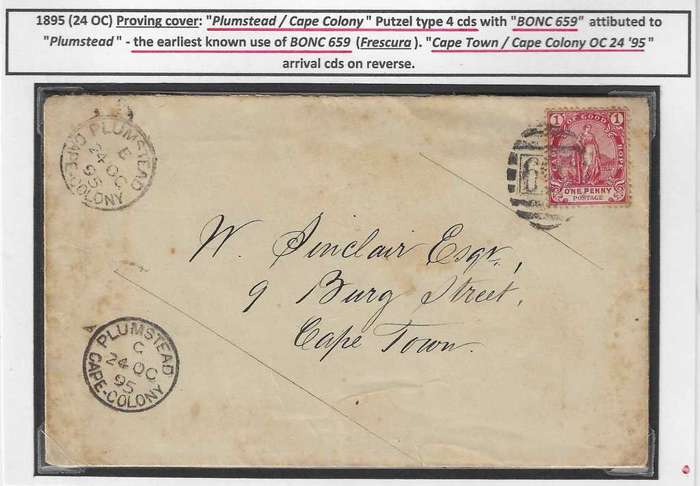 1895 (24 OC) Proving cover: "Plumstead / Cape Colony" Putzel type 4 cds with "BONC 659" attibuted to
"Plumstead" - the earliest known use of BONC 659 (Frescura). "Cape Town / Cape Colony OC 24 '95"
arrival cds on reverse.
PLUMSTEAD
E
24 OC
95
CAPE-COLONY
1 OF GOOD 1
HOPE
ONE PENNY
POSTAGE
6
W. Sinclair Esqr,
9 Burg Street,
Cape Town.
PLUMSTEAD
C
24 OC
95
CAPE-COLONY